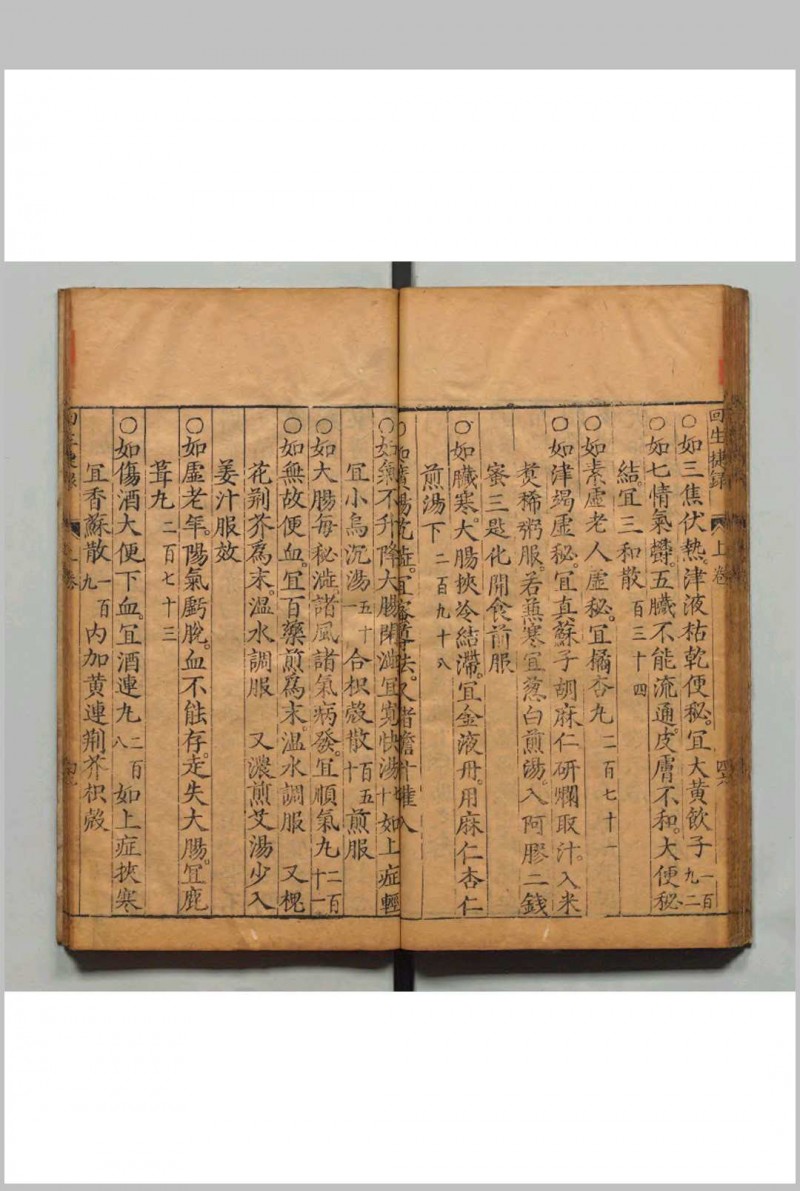 回生捷錄 上卷
○如三焦伏熱。津液枯乾便秘。宜大黃飲子一百九二
○如七情氣鬱。五臟不能流通。皮膚不和。大便秘
結。宜三和散百三十四
○如素虛老人虛秘。宜橘杏九二百七十一
○如津竭虛秘。宜真蘇子胡麻仁研爛取汁。入米
煑稀粥服。若蕉寒宜葱白煎湯。入阿膠二錢
蜜三匙化開食前服
○如臟寒。大腸挾冷結滯。宜金液丹。用麻仁杏仁
煎湯下二百九十八
宜蜜導法。又猪膽汁
○如氣不升降大腸閉澁宜寬快湯十如上症輕
宜小烏沉湯五十一合枳殼散百五十煎服
○如大腸每秘澁。諸風諸氣病發。宜順氣九二百十一
○如無故便血。宜百藥煎爲末。溫水調服 又槐
花荆芥爲末。溫水調服 又濃煎艾湯少入
姜汁服效
○如虛老年。陽氣虧脫。血不能存。走失大腸。宜鹿
茸九二百七十三
○如傷酒大便下血。宜酒連九二百八如上症挾寒
宜香蘇散一百九內加黃連荆芥枳殼